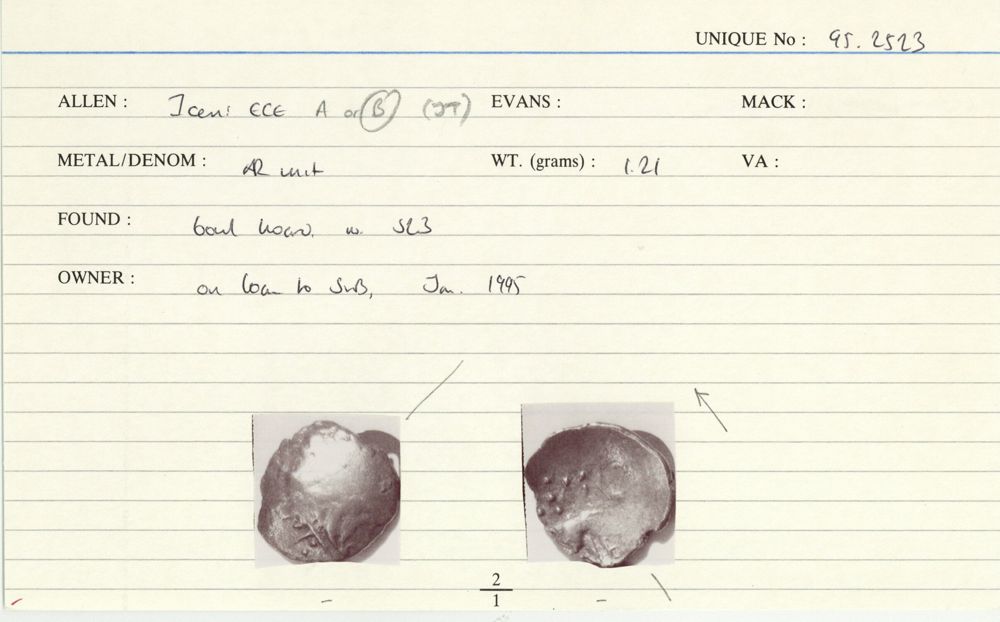 UNIQUE No : 95.2523
ALLEN : Iceni ECE A or B (JT) EVANS : MACK :
METAL/DENOM : AR unit WT. (grams) : 1.21 VA :
FOUND : bowl hoard. w.
OWNER : on loan to SWB, Jan. 1995
2
1